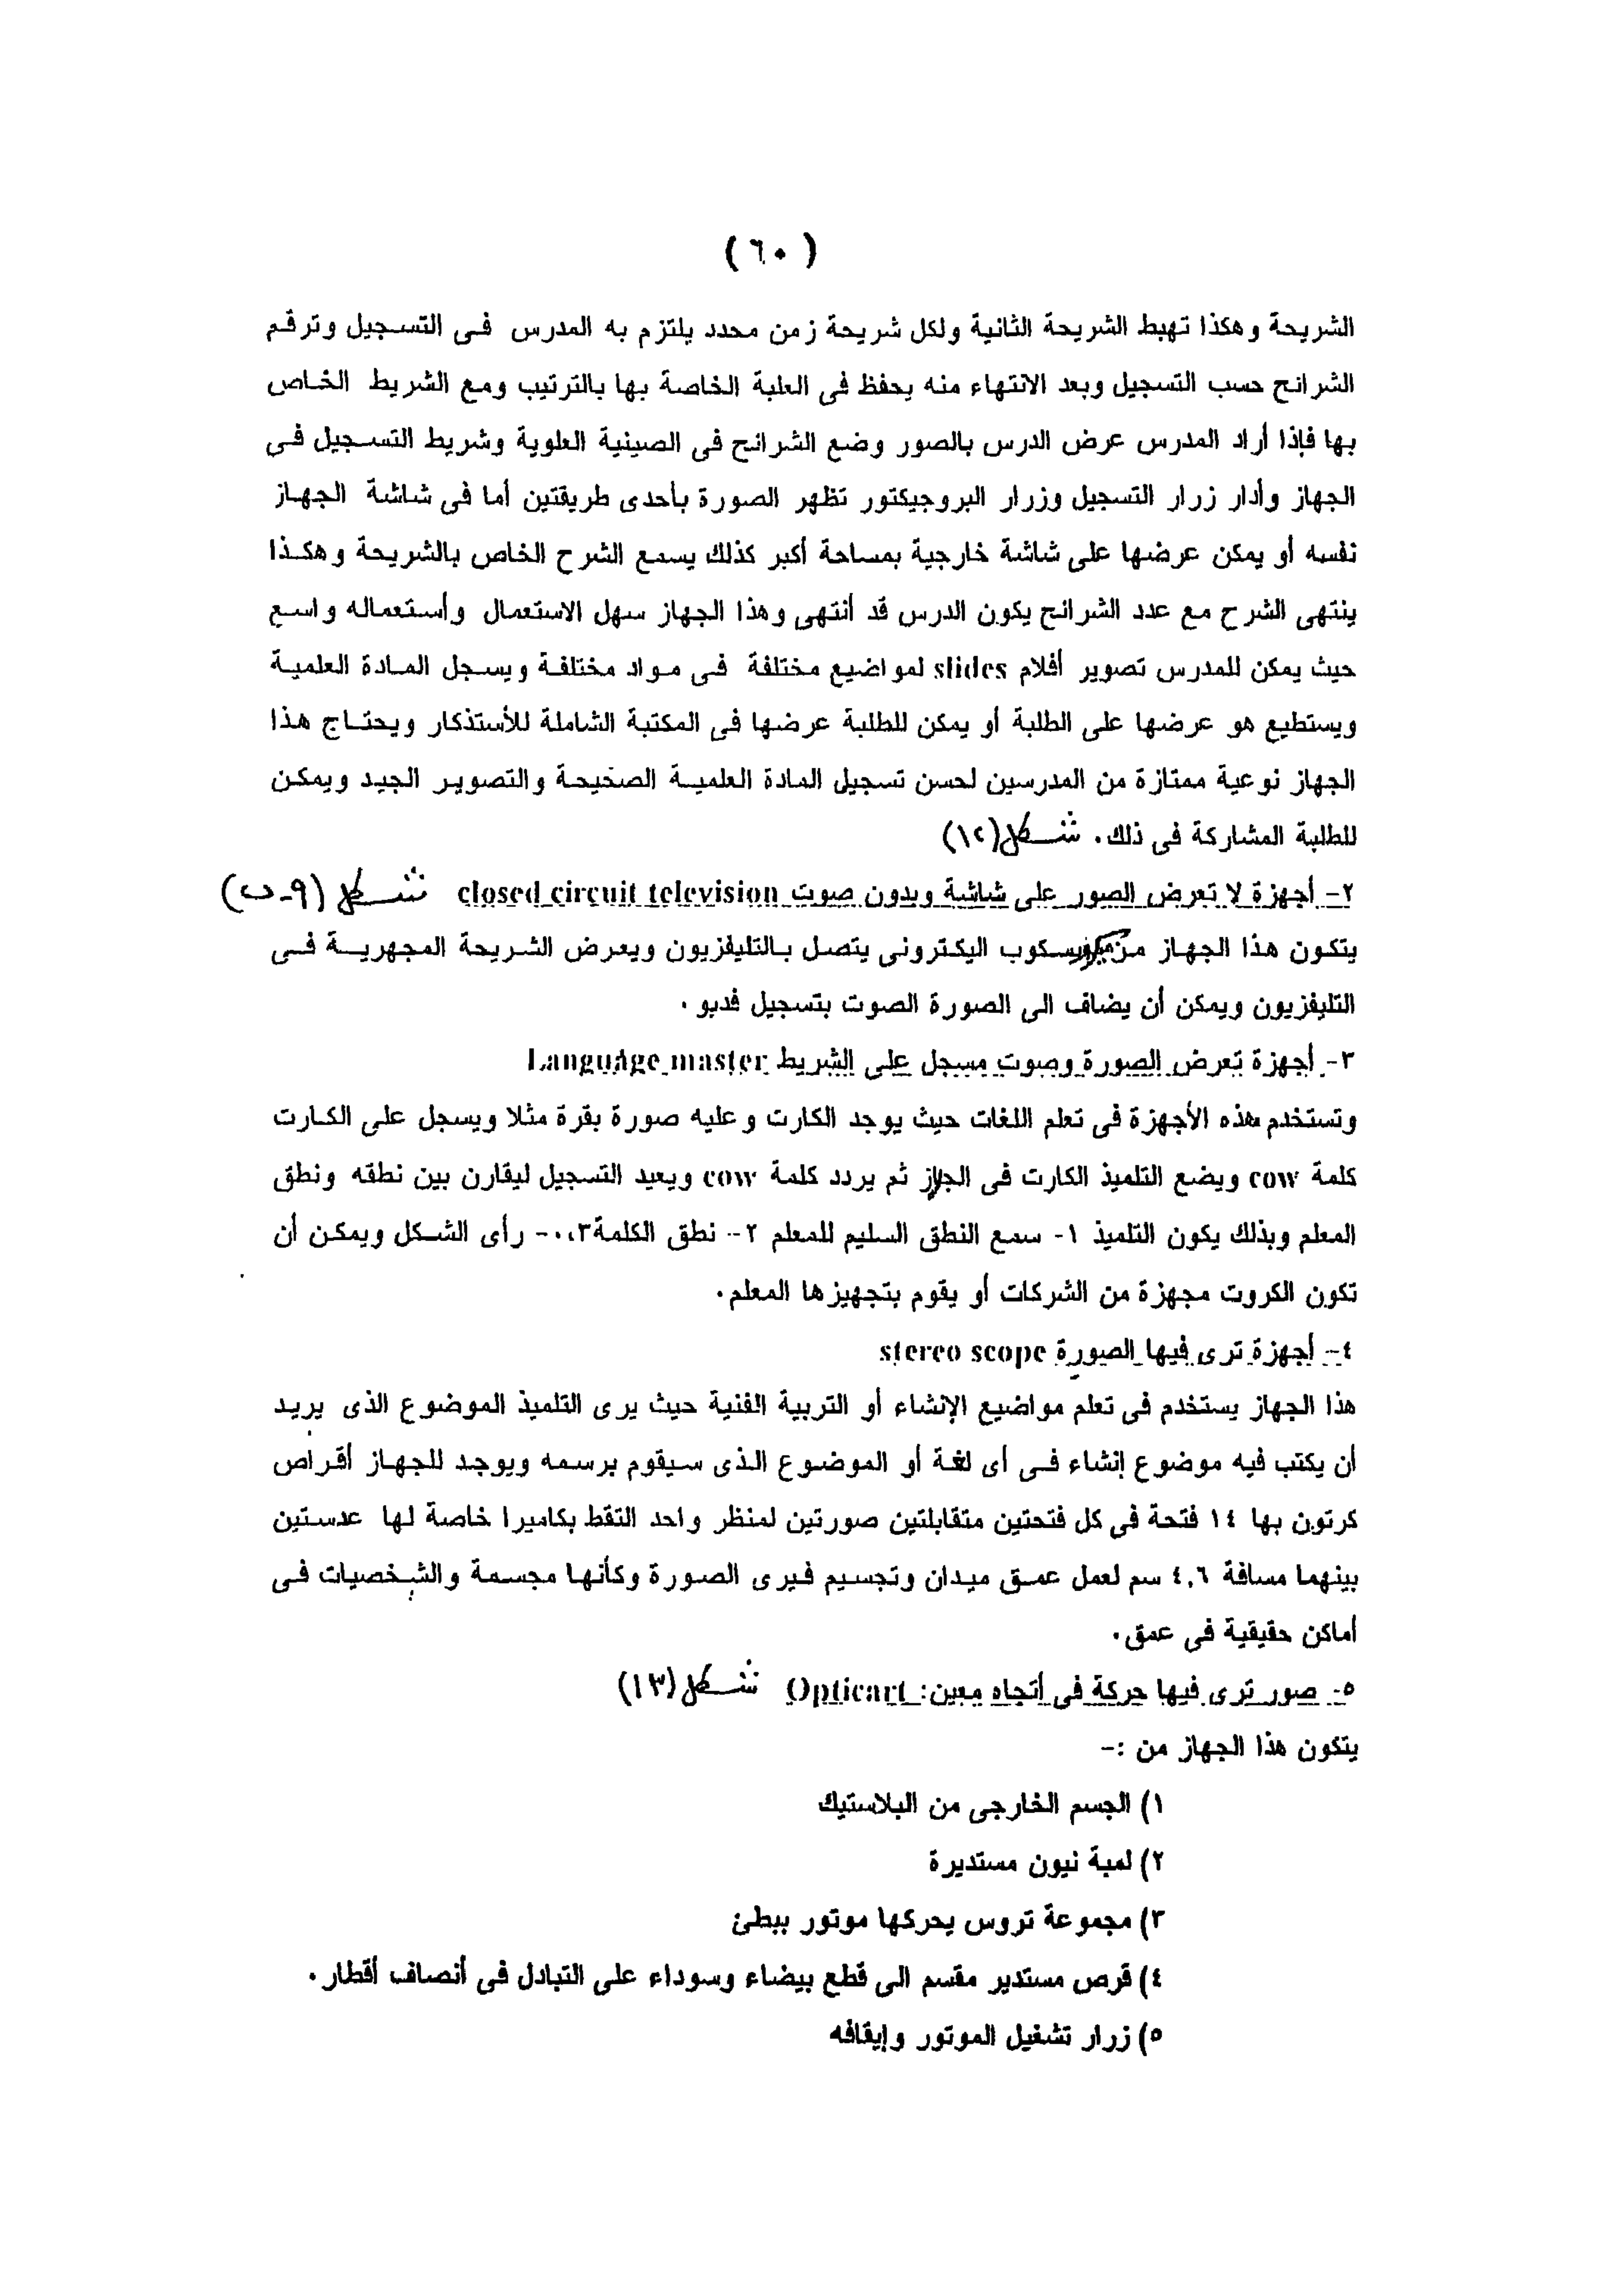 ( ٦٠ )
الشريحة وهكذا تهبط الشريحة الثانية ولكل شريحة زمن محدد يلتزم به المدرس فى التسجيل وترقم
الشرائح حسب التسجيل وبعد الانتهاء منه يحفظ فى العلبة الخاصة بها بالترتيب ومع الشريط الخاص
بها فإذا أراد المدرس عرض الدرس بالصور وضع الشرائح فى الصينية العلوية وشريط التسجيل فى
الجهاز وأدار زرار التسجيل وزرار البروجيكتور تظهر الصورة بأحدى طريقتين أما فى شاشة الجهاز
نفسه أو يمكن عرضها على شاشة خارجية بمساحة أكبر كذلك يسمع الشرح الخاص بالشريحة وهكذا
ينتهى الشرح مع عدد الشرائح يكون الدرس قد أنتهى وهذا الجهاز سهل الاستعمال وأستعماله واسع
حيث يمكن للمدرس تصوير أفلام slides لمواضيع مختلفة فى مواد مختلفة ويسجل المادة العلمية
ويستطيع هو عرضها على الطلبة أو يمكن للطلبة عرضها فى المكتبة الشاملة للأستذكار ويحتاج هذا
الجهاز نوعية ممتازة من المدرسين لحسن تسجيل المادة العلمية الصحيحة والتصوير الجيد ويمكن
للطلبة المشاركة فى ذلك. شكل (١٢)
٢- أجهزة لا تعرض الصور على شاشة وبدون صوت closed circuit television شكل (٩-ب)
يتكون هذا الجهاز من ميكروسكوب اليكترونى يتصل بالتليفزيون ويعرض الشريحة المجهرية فى
التليفزيون ويمكن أن يضاف الى الصورة الصوت بتسجيل فديو .
٣- أجهزة تعرض الصورة وصوت مسجل على الشريط Language master
وتستخدم هذه الأجهزة فى تعلم اللغات حيث يوجد الكارت وعليه صورة بقرة مثلا ويسجل على الكارت
كلمة cow ويضع التلميذ الكارت فى الجهاز ثم يردد كلمة cow ويعيد التسجيل ليقارن بين نطقه ونطق
المعلم وبذلك يكون التلميذ ١- سمع النطق السليم للمعلم ٢- نطق الكلمة ٣- رأى الشكل ويمكن أن
تكون الكروت مجهزة من الشركات أو يقوم بتجهيزها المعلم.
٤- أجهزة ترى فيها الصورة stereo scope
هذا الجهاز يستخدم فى تعلم مواضيع الإنشاء أو التربية الفنية حيث يرى التلميذ الموضوع الذى يريد
أن يكتب فيه موضوع إنشاء فى أى لغة أو الموضوع الذى سيقوم برسمه ويوجد للجهاز أقراص
كرتون بها ١٤ فتحة فى كل فتحتين متقابلتين صورتين لمنظر واحد التقط بكاميرا خاصة لها عدستين
بينهما مسافة ٤,٦ سم لعمل عمق ميدان وتجسيم فيرى الصورة وكأنها مجسمة والشخصيات فى
أماكن حقيقية فى عمق.
٥- صور ترى فيها حركة فى أتجاه معين: Opticart شكل (١٣)
يتكون هذا الجهاز من :-
١) الجسم الخارجى من البلاستيك
٢) لمبة نيون مستديرة
٣) مجموعة تروس يحركها موتور ببطئ
٤) قرص مستدير مقسم الى قطع بيضاء وسوداء على التبادل فى أنصاف أقطار.
٥) زرار تشغيل الموتور وإيقافه